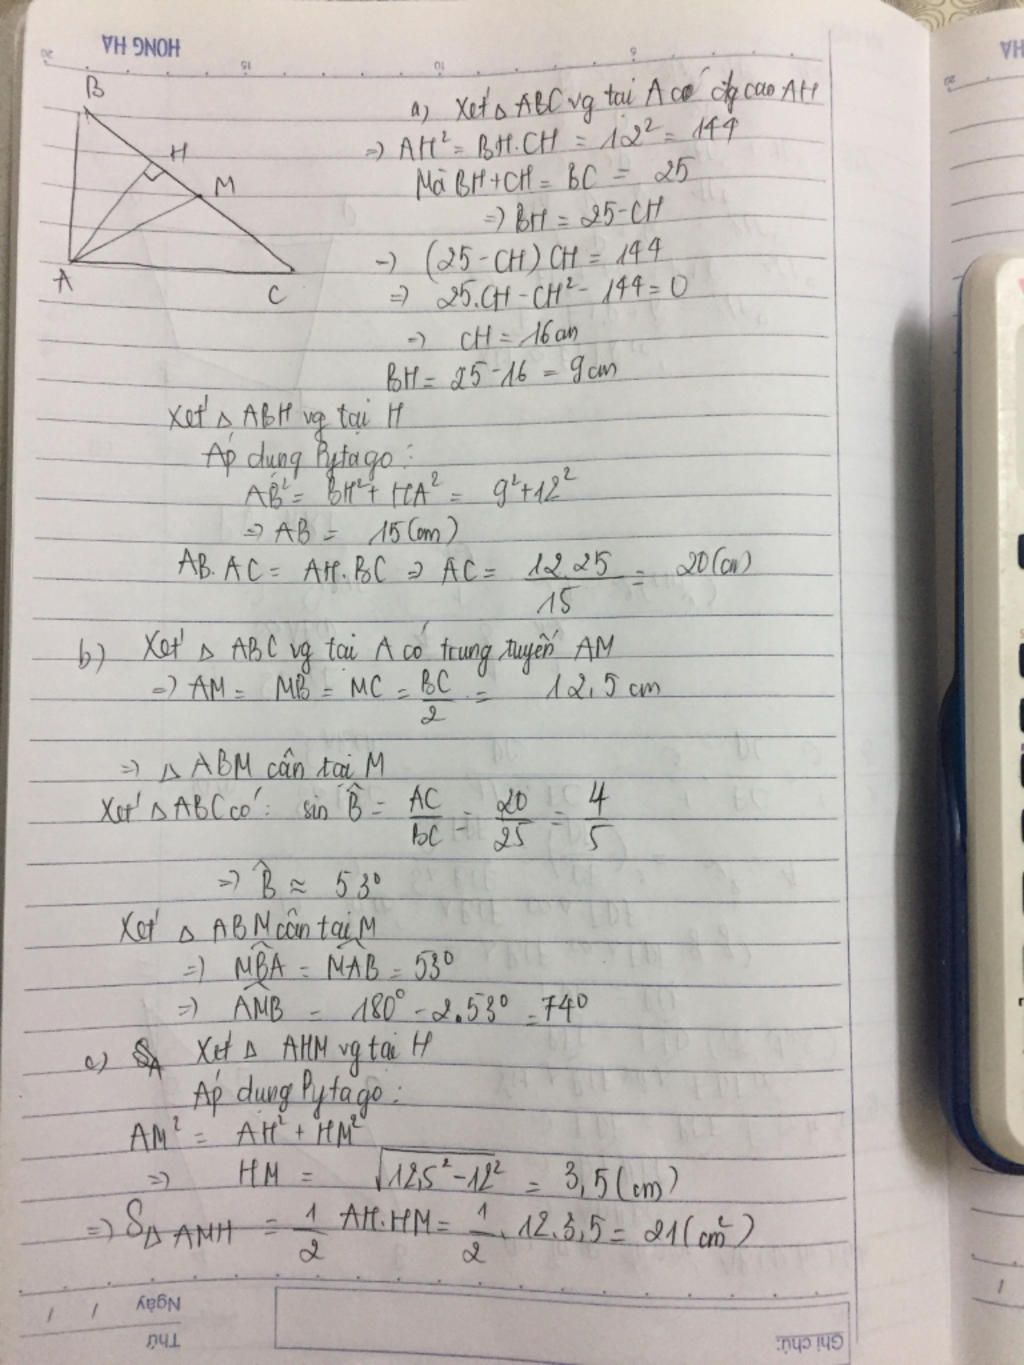 HONG HA
20
15
10
5
B
H
M
A
C
a) Xét Δ ABC vg tại A có đg cao AH
=> AH² = BH.CH = 12² = 144
Mà BH+CH = BC = 25
=> BH = 25-CH
=> (25-CH) CH = 144
=> 25.CH - CH² - 144 = 0
=> CH = 16cm
BH = 25-16 = 9cm
Xét Δ ABH vg tại H
Áp dụng Pytago :
AB² = BH² + HA² = 9²+12²
=> AB = 15(cm)
AB.AC = AH.BC => AC = 12.25/15 = 20(cm)
b) Xét Δ ABC vg tại A có trung tuyến AM
=> AM = MB = MC = BC/2 = 12,5 cm
=> Δ ABM cân tại M
Xét Δ ABC có : sin B̂ = AC/BC = 20/25 = 4/5
=> B̂ ≈ 53°
Xét Δ ABM cân tại M
=> MBA = MAB = 53°
=> AMB = 180° - 2.53° = 74°
c) Xét Δ AHM vg tại H
Áp dụng Pytago :
AM² = AH² + HM²
=> HM = √12,5²-12² = 3,5 (cm)
=> SΔ AMH = 1/2 AH.HM = 1/2 . 12.3,5 = 21(cm²)
Ngày / /
Thứ
Ghi chú: